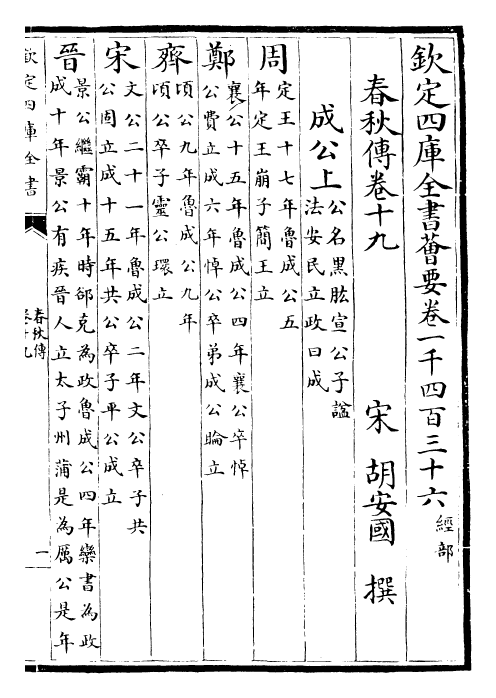 欽定四庫全書薈要卷一千四百三十六經部
春秋傳卷十九
宋 胡安國 撰
成公上公名黑肱宣公子諡
法安民立政曰成
周定王十七年魯成公五
年定王崩子簡王立
鄭襄公十五年魯成公四年襄公卒悼
公費立成六年悼公卒弟成公睔立
齊頃公九年魯成公九年
頃公卒子靈公環立
宋文公二十一年魯成公二年文公卒子共
公固立成十五年共公卒子平公成立
晉景公繼霸十年時郤克為政魯成公四年欒書為政
成十年景公有疾晉人立太子州蒲是為厲公是年
欽定四庫全書
春秋傳
卷十九
一